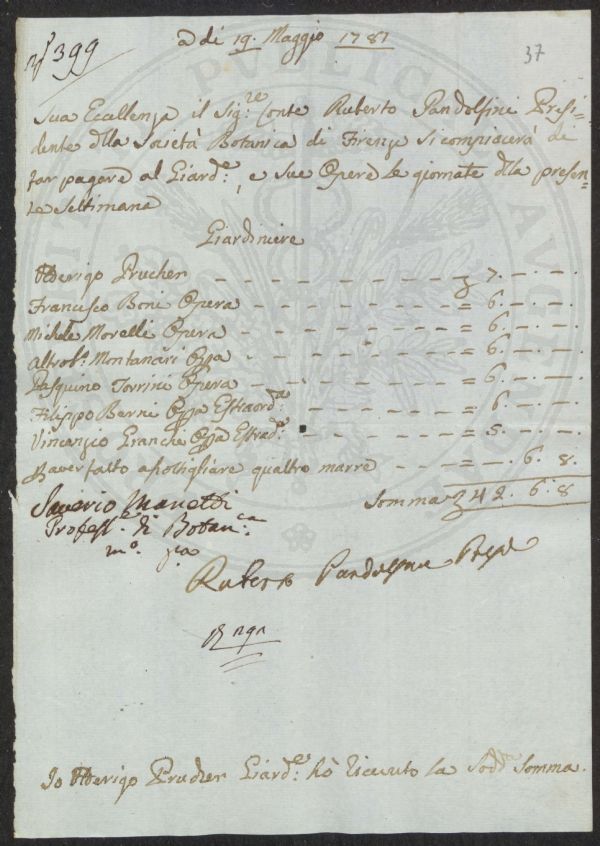 N° 399
37
a dì 19. Maggio 1781
Sua Eccellenza il Sig:re Conte Ruberto Pandolfini Presi=
dente dlla Società Botanica di Firenze Si compiacerà di
far pagare al Giard:e, e Sue Opere le giornate dlla presen=
te Settimana
Giardiniere
Federigo Prucher - - - - - - - £ 7. -. -.
Francesco Boni Opera - - - - - - = 6. -. -.
Michele Morelli Opera - - - - - - = 6. -. -.
Altrob:o Montancari Opa - - - - - - = 6. -. -.
Pasquino Torrini Opera - - - - - - = 6. -. -.
Filippo Barni Opa Estraord:a - - - - = 6. -. -.
Vincenzio Granchi Opa Estrad:a - - - = 5. -. -.
P aver fatto apotigliare quattro marre - - - = -. 6. 8.
Somma £ 42. 6. 8
Saverio Manetti
Profess:e di Botan:ca
m:o p:a
Ruberto Pandolfini Presid
Io Federigo Prucher Giard:e hò ricevuto la Sodd:a Somma.
PVBLICAE
AVGENDAE